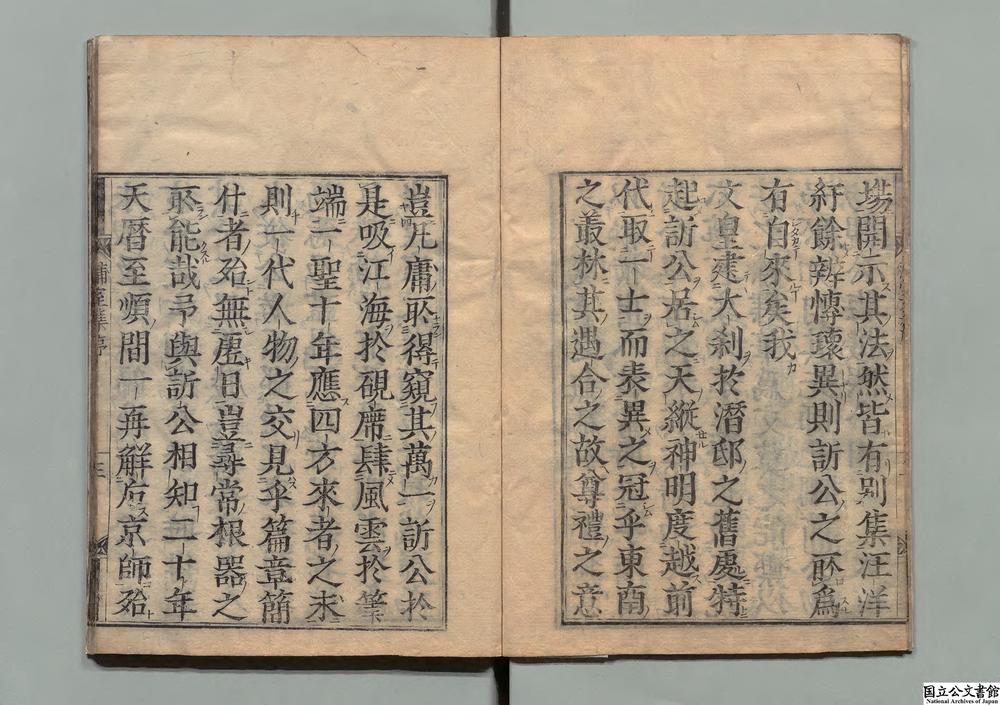 塲開示其法然皆有別集汪洋
紆餘辨慱瓌異則訢公之所爲
有自來矣我
文皇建大刹於潛邸之舊處特
起訢公居之天縱神明度越前
代取一士而表異之冠乎東南
之叢林其遇合之故尊禮之意
豈凡庸所得窺其萬一訢公於
是吸江海於硯席肆風雲於筆
端一聖十年應四方來者之求
則一代人物之交見乎篇章簡
什者殆無虛日豈尋常根器之
所能哉予與訢公相知二十年
天曆至順間一再解后京師殆
蒲室集序
三
国立公文書館
National Archives of Japan